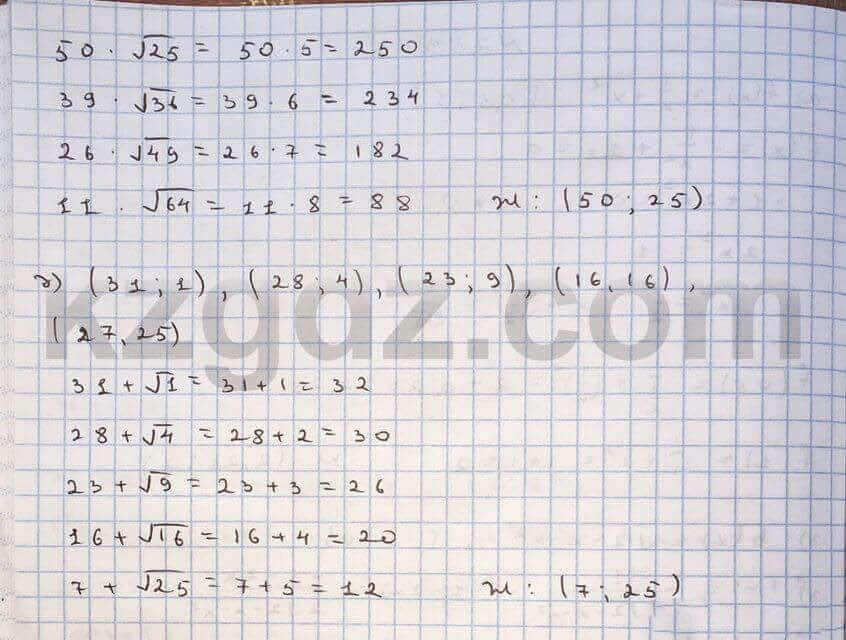 50 · √25 = 50 · 5 = 250
39 · √36 = 39 · 6 = 234
26 · √49 = 26 · 7 = 182
11 · √64 = 11 · 8 = 88 ж: (50; 25)
г) (31; 1), (28; 4), (23; 9), (16, 16),
(27, 25)
kzgdz.com
31 + √1 = 31 + 1 = 32
28 + √4 = 28 + 2 = 30
23 + √9 = 23 + 3 = 26
16 + √16 = 16 + 4 = 20
7 + √25 = 7 + 5 = 12 ж: (7; 25)